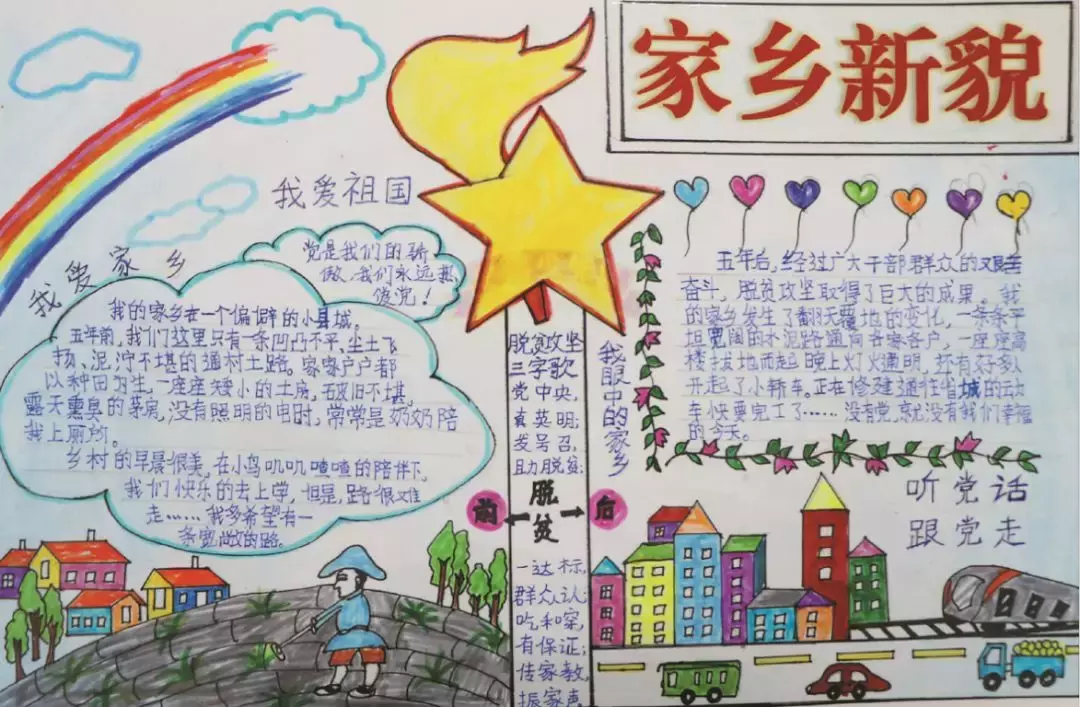 家乡新貌
我爱祖国
我爱家乡
党是我们的骄
傲,我们永远热
爱党!
我的家乡在一个偏僻的小县城。
五年前,我们这里只有一条凹凸不平、尘土飞
扬、泥泞不堪的通村土路。家家户户都
以种田为生,一座座矮小的土房,破旧不堪。
露天熏臭的茅房,没有照明的电时,常常是奶奶陪
我上厕所。
乡村的早晨很美,在小鸟叽叽喳喳的陪伴下,
我们快乐的去上学,但是,路很难
走……我多希望有一
条宽敞的路。
脱贫攻坚
三字歌
党中央,
真英明;
发号召,
助脱贫;
前
脱贫
后
一达标,
群众认;
吃和穿,
有保证;
传家教,
振家声
我眼中的家乡
五年后,经过广大干部群众的艰苦
奋斗,脱贫攻坚取得了巨大的成果。我
的家乡发生了翻天覆地的变化,一条条平
坦宽阔的水泥路通向各家各户,一座座高
楼拔地而起,晚上灯火通明,还有好多人
开起了小轿车。正在修建通往省城的动
车快要完工了……没有党,就没有我们幸福
的今天。
听党话
跟党走